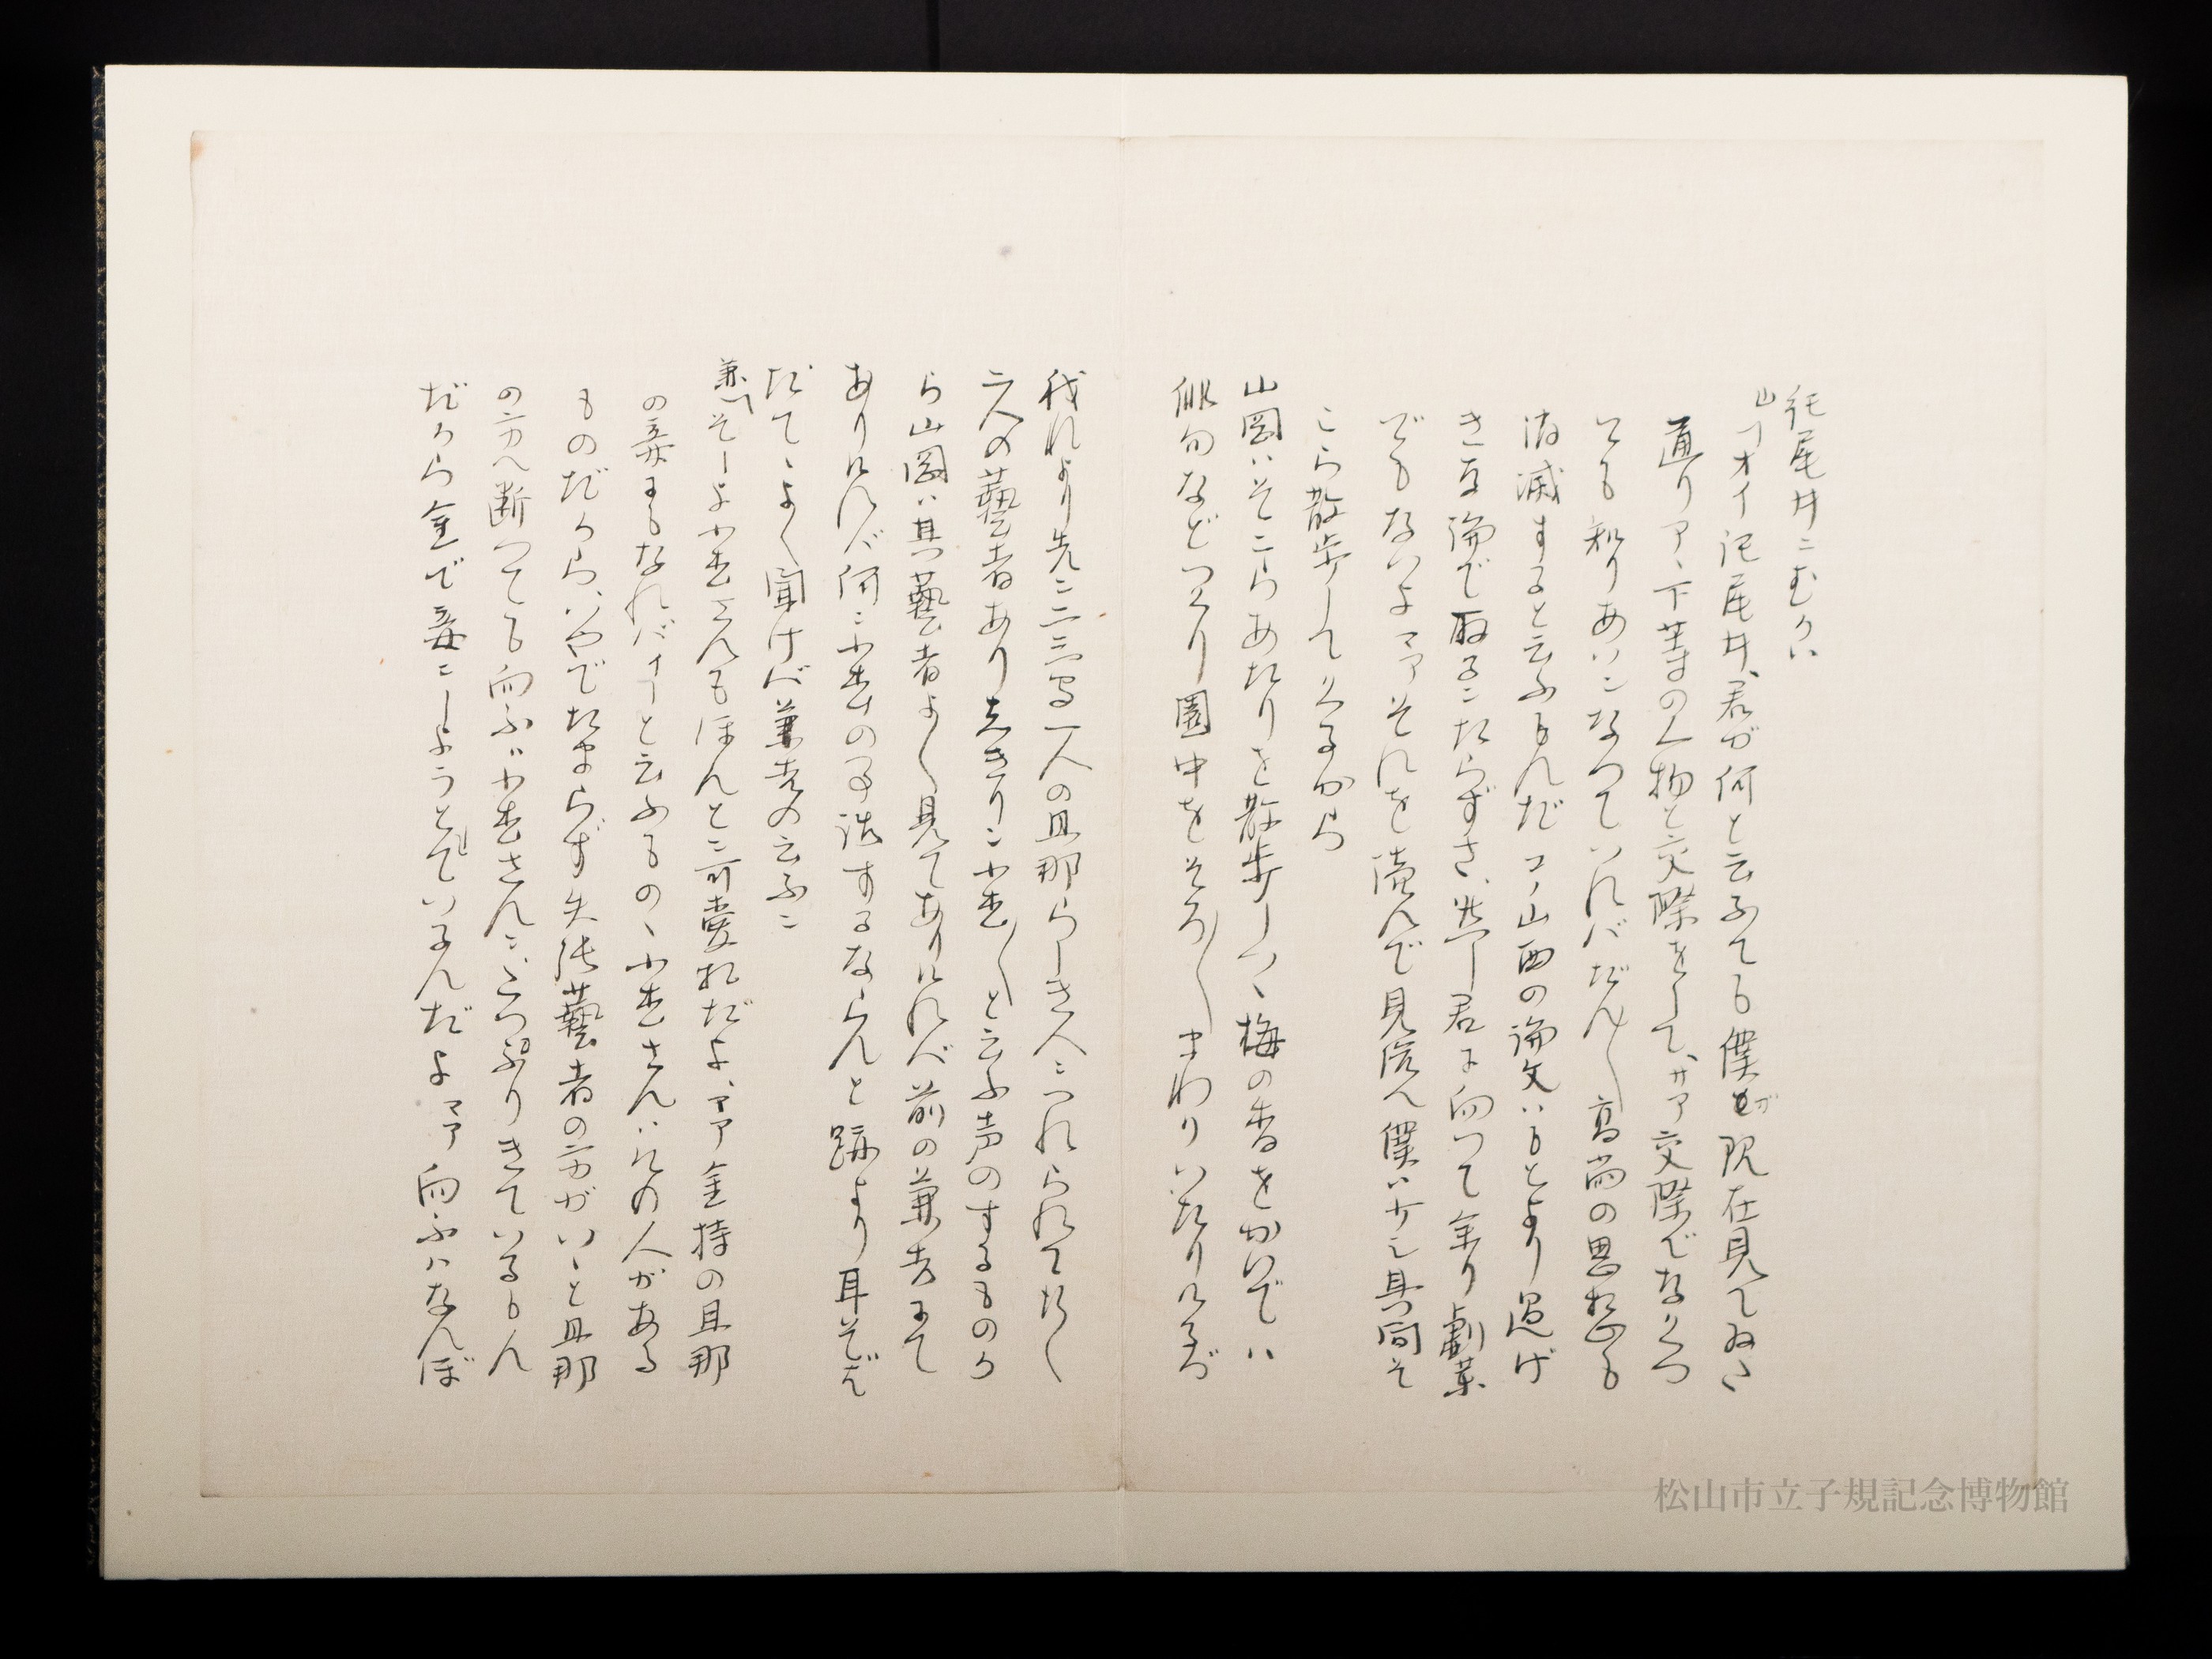 紀尾井ニむかハ
山「オイ紀尾井、君が何と云ふても僕が現在見てゐた
通りア、下等の人物と交際をして、サア交際でなくつ
ても知りあいになつていれバだん／＼高尚の思想も
消滅すると云ふもんだ コノ山西の論文ハもとより愚げ
きな論で取るにたらずさ、然し君に向つて余り劇薬
でもないよ マアそれを読んで見給へ 僕ハ少し其間そ
こら散歩してくるから
山岡ハそこらあたりを散歩しつゝ梅の香をかいでハ
俳句などつくり園中をそろ／＼まわりいたりけるが
我れより先ニ二三間一人の旦那らしき人ニつれられて行く
二人の藝者あり しきりニ小まつ／＼と云ふ声のするものか
ら山岡ハ其藝者よく見てありけれバ前の兼吉にて
ありけれバ何ニ小まつの事話するならんと跡より耳そば
だてゝよく聞けバ兼吉の云ふニ
兼「そーよ小まつさんもほんとニ可愛相だよ、マア金持の旦那
の妾にもなれバイヽと云ふもの、小まつさんハれの人がある
ものだから、いやでたまらず矢張藝者の方がいゝと旦那
の方へ断つても向ふハ小まつさんニこつぷりきているもん
だから金で妾にしようとしているんだよ マア向ふハなんぼ
松山市立子規記念博物館